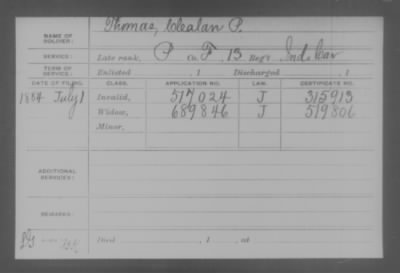 NAME OF SOLDIER: Thomas, Clealan P.
SERVICE: Late rank, P Co. F, 13 Reg't Ind. Cav
TERM OF SERVICE: Enlisted , 1 Discharged , 1
DATE OF FILING. CLASS. APPLICATION NO. LAW. CERTIFICATE NO.
1884 July 1 Invalid, 517024 J 315913
Widow, 689846 J 519806
Minor,
ADDITIONAL SERVICES:
REMARKS:
Died , 1 , at